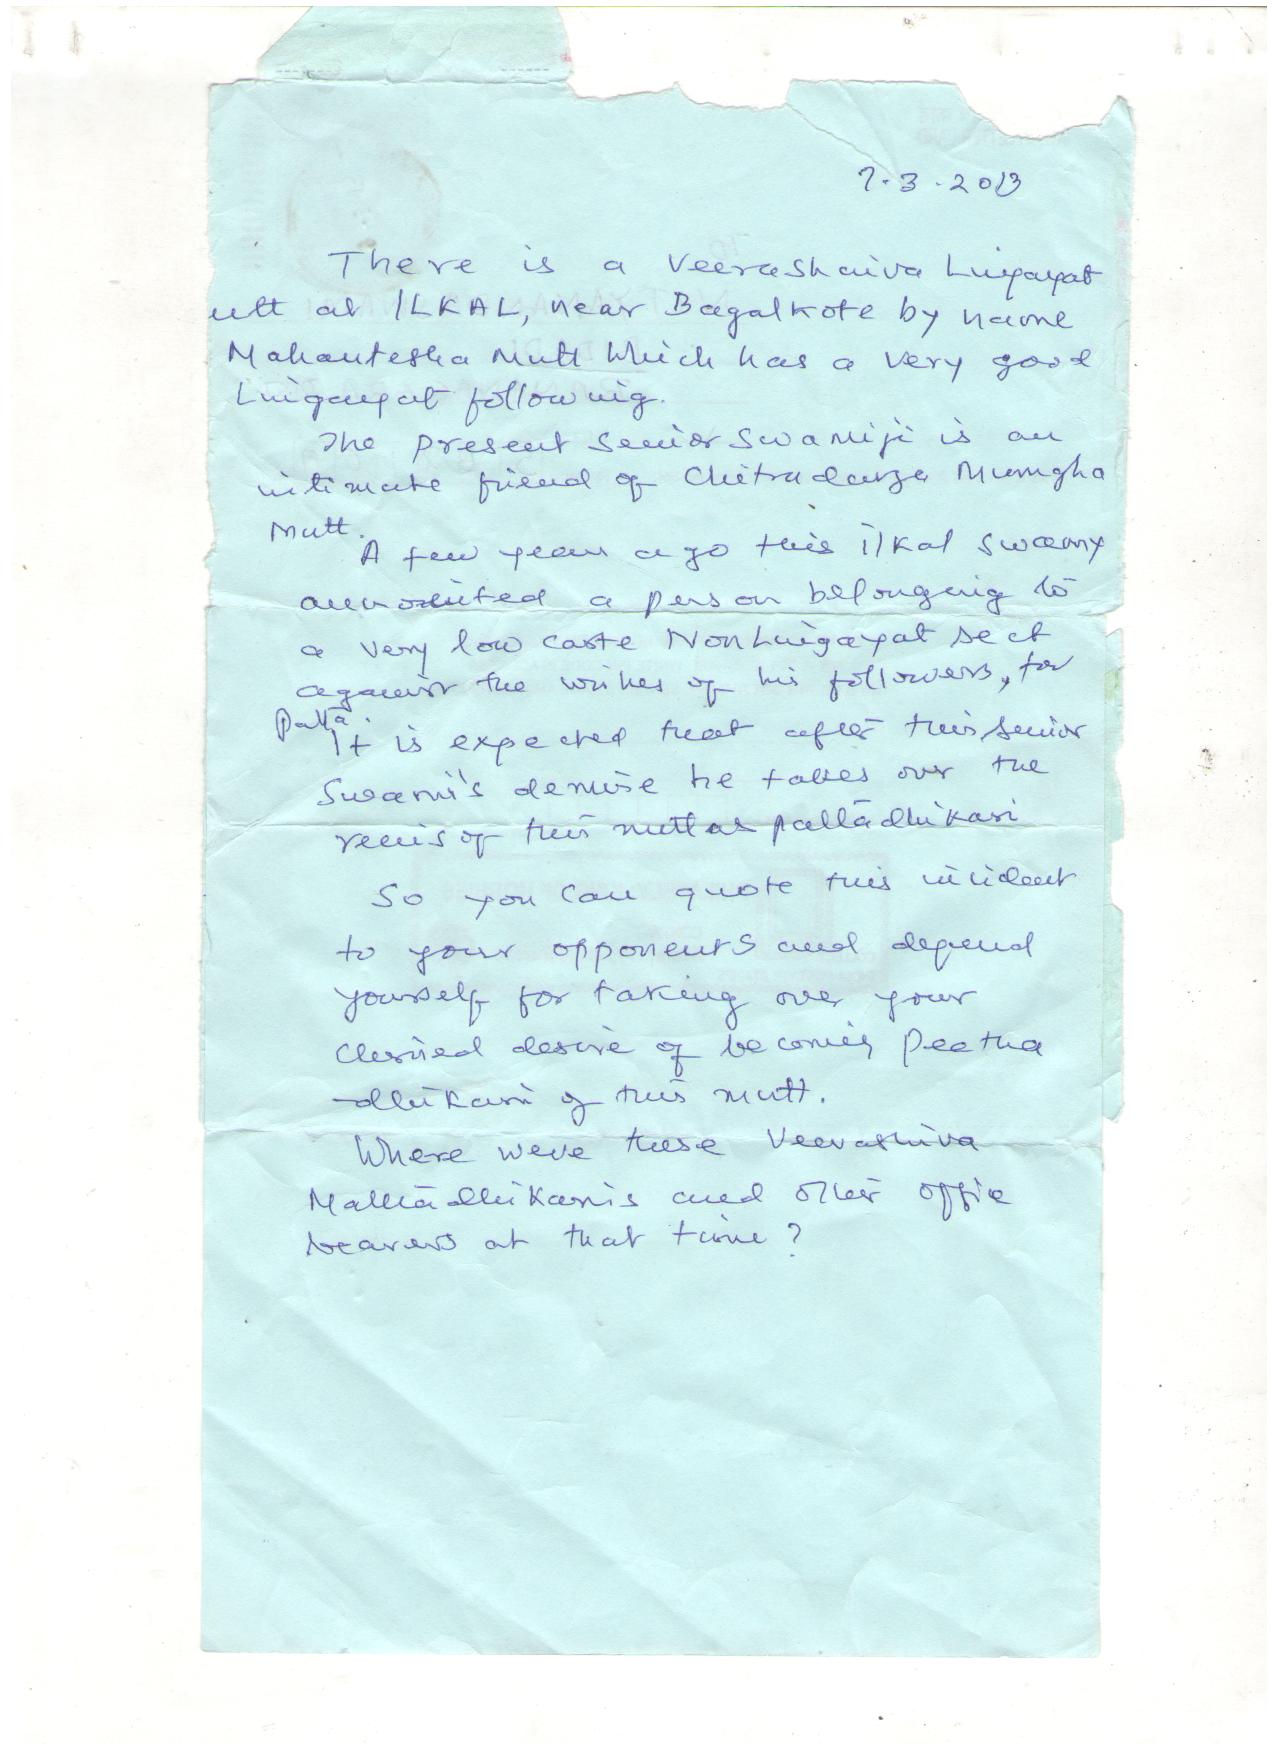 7.3.2013
There is a Veerashaiva Lingayat
utt at ILKAL, near Bagalkote by name
Mahantesha Mutt Which has a very good
Lingayat following.
The present Senior Swamiji is an
intimate friend of Chitradurga Murugha
Mutt.
A few years ago this ilkal Swamy
annointed a person belonging to
a very low caste Non Lingayat sect
against the wishes of his followers, for
Patta.
It is expected that after this senior
Swami's demise he takes over the
reins of this mutt as pattādhikari
So you can quote this incident
to your opponents and depend
yourself for taking over your
desire of becoming Peetha
dhikari of this mutt.
Where were these Veerashiva
Mattādhikaris and other office
bearers at that time?